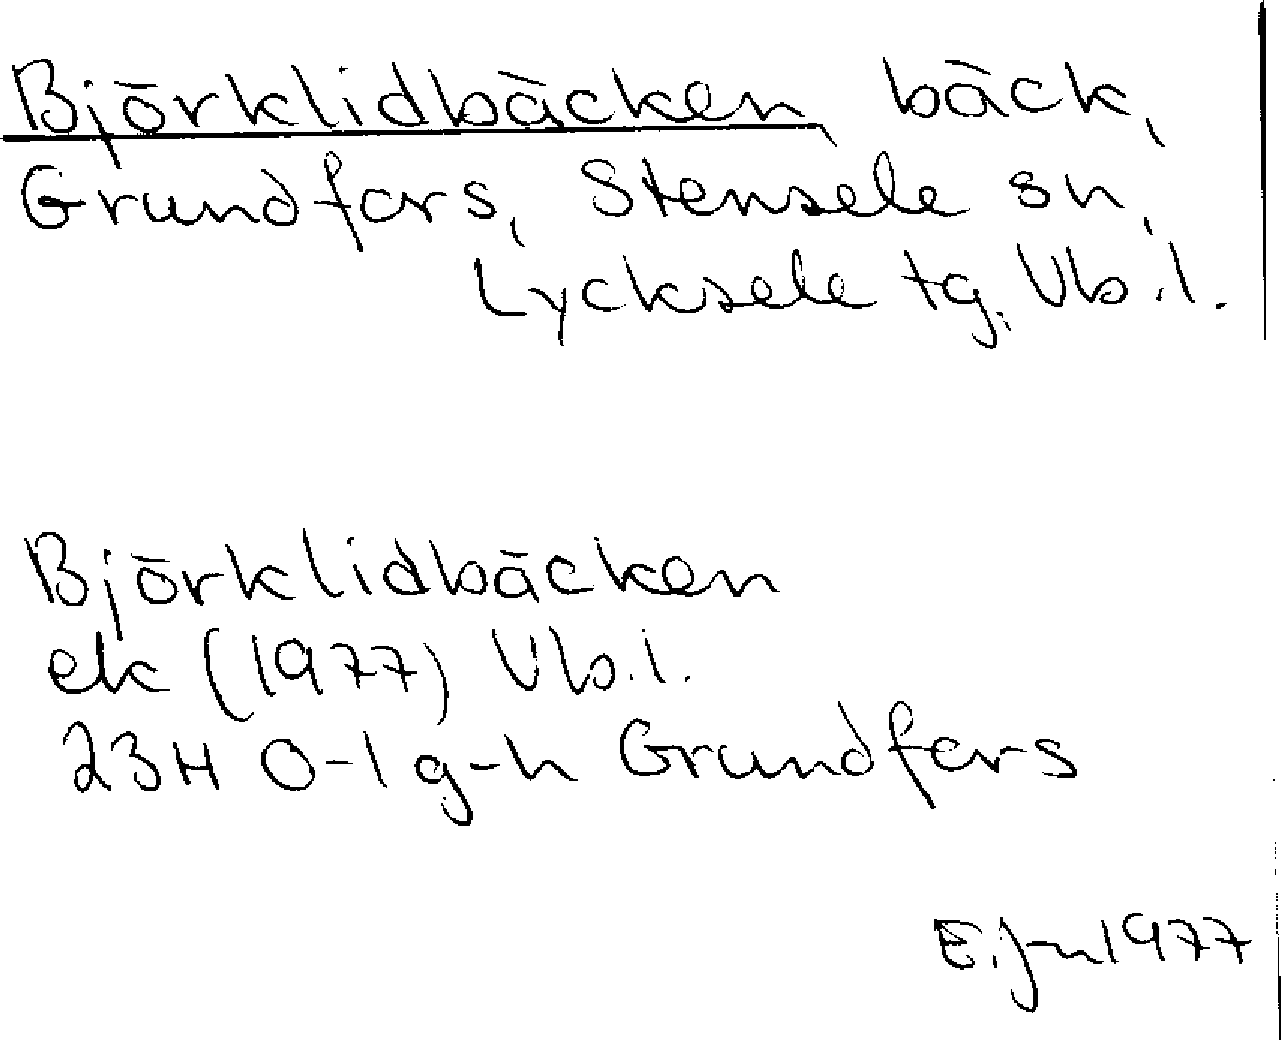 Björklidbäcken, bäck,
Grundfors, Stensele sn,
Lycksele tg. Vb.l.
Björklidbäcken
ek (1977) Vb.l.
23H 0-1 g-h Grundfors
1977